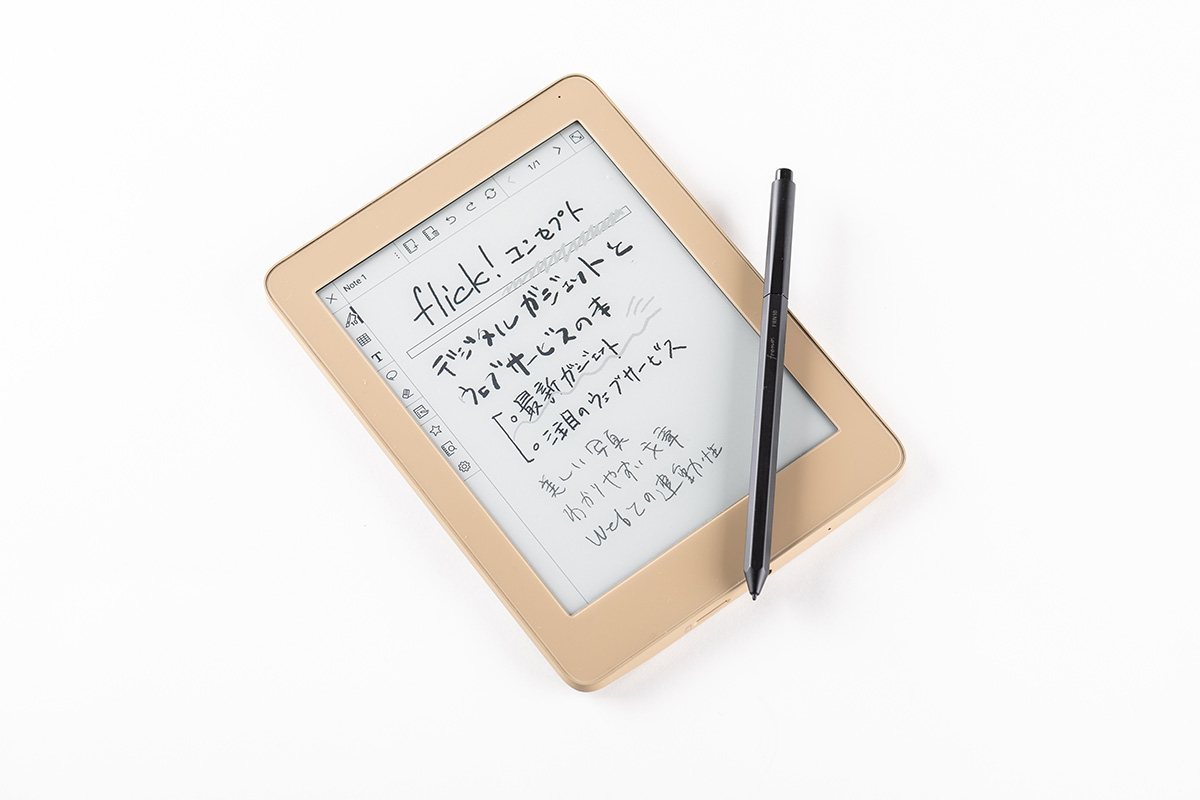 Note 1
1/1
T
flick! コンセプト
デジタルガジェットと
ウェブサービスの本
○最新ガジェット
○注目のウェブサービス
美しい写真
わかりやすい文章
Webとの連動性